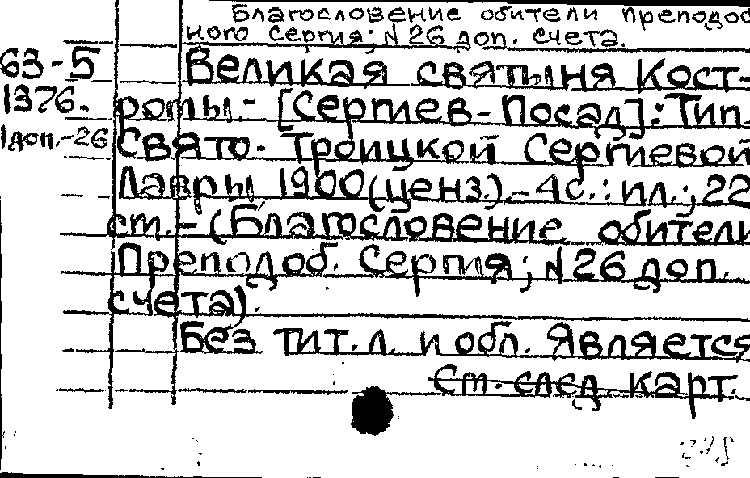 Благословение обители преподоб
ного Сергия; N 26 доп. счета.
63-5
1376.
1доп.-26
Великая святыня Кост-
ромы.- [Сергиев-Посад]: Тип.
Свято-Троицкой Сергиевой
Лавры, 1900(ценз.).-4с.: ил.; 22
см.-(Благословение обители
Преподоб. Сергия; N 26 доп.
счета).
Без тит.л. и обл. Является
См. след. карт.